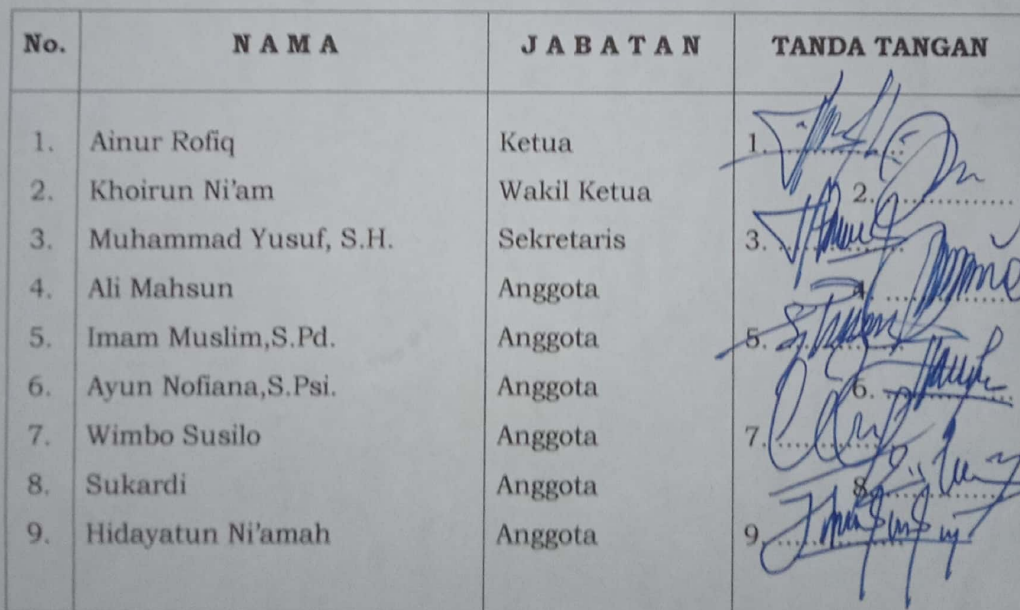 No. N A M A J A B A T A N TANDA TANGAN
1. Ainur Rofiq Ketua 1.
2. Khoirun Ni'am Wakil Ketua 2.
3. Muhammad Yusuf, S.H. Sekretaris 3.
4. Ali Mahsun Anggota 4.
5. Imam Muslim,S.Pd. Anggota 5.
6. Ayun Nofiana,S.Psi. Anggota 6.
7. Wimbo Susilo Anggota 7.
8. Sukardi Anggota 8.
9. Hidayatun Ni'amah Anggota 9.